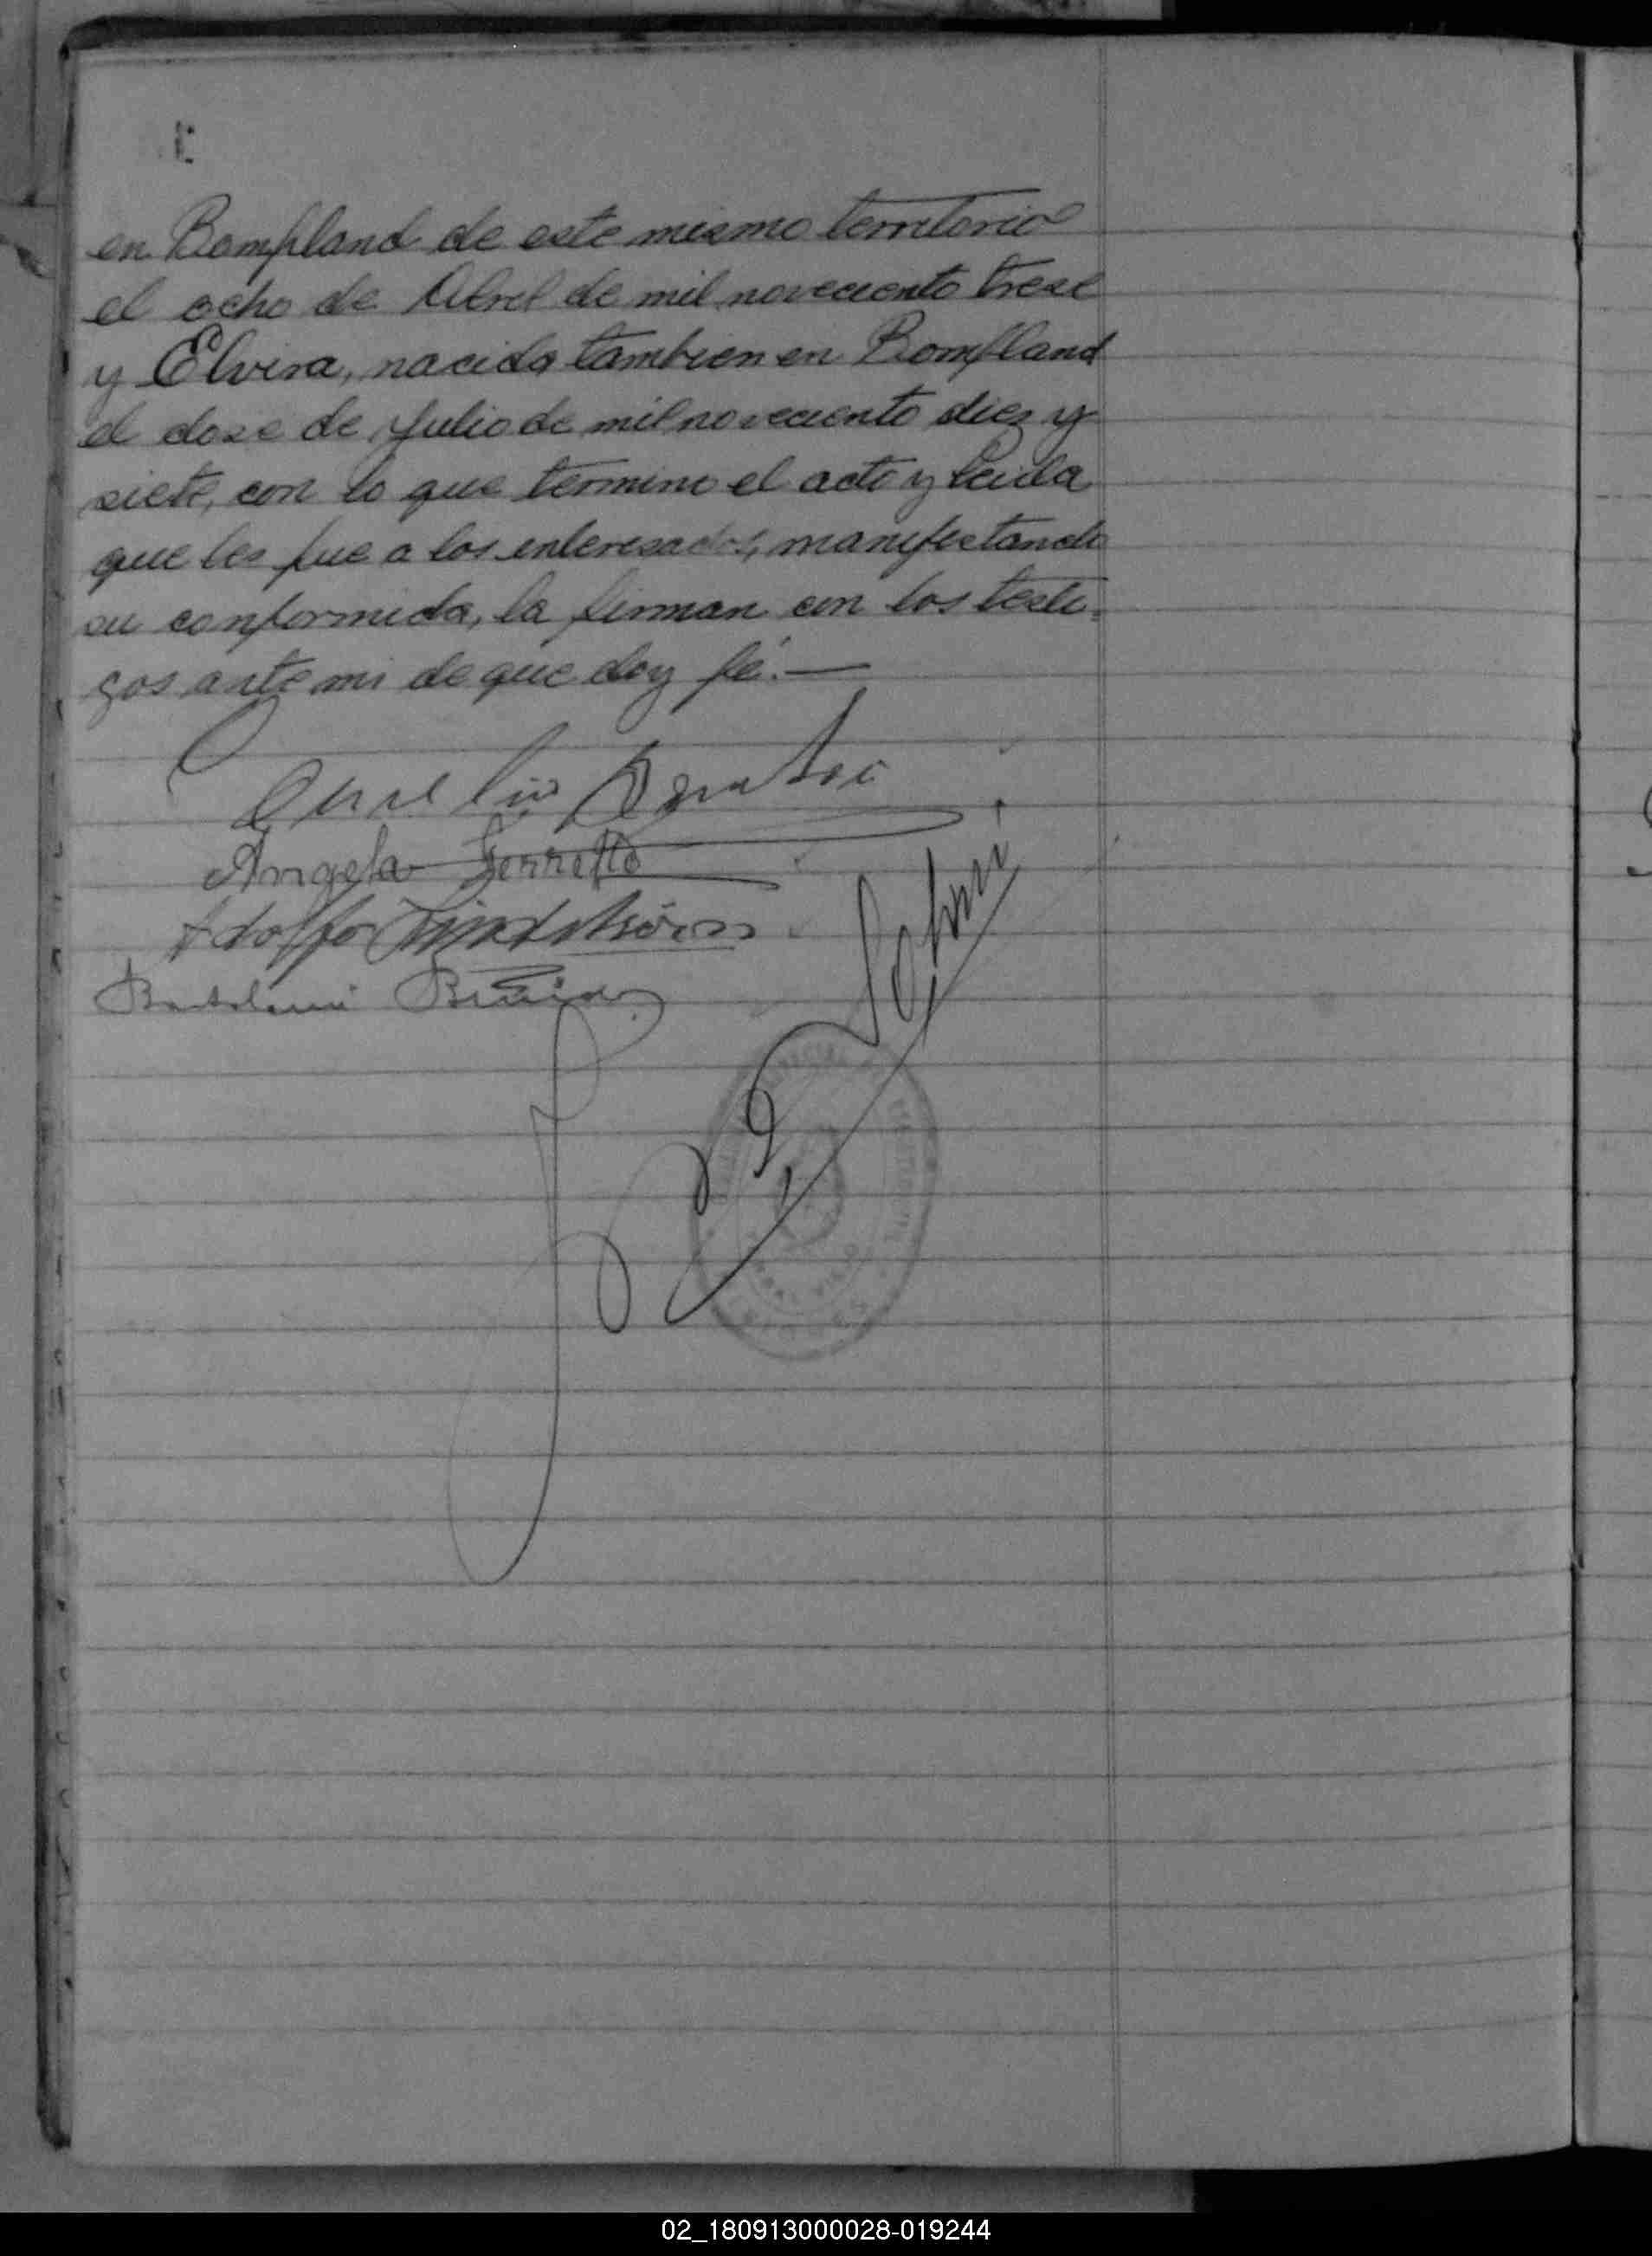 en Bompland de este mismo territorio
el ocho de Abril de mil noveciento trese
y Elvira, nacida tambien en Bompland
el dose de Julio de mil noveciento diez y
siete, con lo que termino el acto y leida
que les fue a los interesados, manifestando
su conformida, la firman con los testi-
gos ante mi de que doy fé.—
Angela Ferretto
Adolfo
Bartolomé
02_180913000028-019244